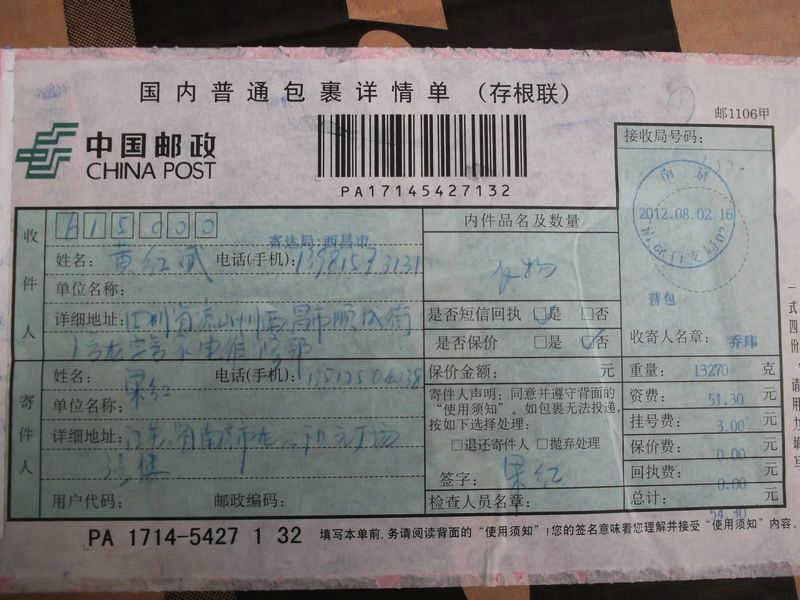 国内普通包裹详情单 （存根联）
邮1106甲
中国邮政
CHINA POST
PA17145427132
接收局号码：
南京
2012.08.02 16
收件人
615000
寄达局：西昌市
姓名：黄红斌 电话(手机)：
单位名称：
详细地址：四川省凉山州西昌市顺城街
内件品名及数量
衣物
是否短信回执 □是 □否
是否保价 □是 □否
保价金额： 元
普包
收寄人员名章： 乔玮
重量： 13270 克
资费： 51.30 元
挂号费： 3.00 元
保价费： 0.00 元
回执费： 0.00 元
总计： 54.30 元
寄件人
姓名：宋红 电话(手机)：
单位名称：
详细地址：江苏
用户代码： 邮政编码：
寄件人声明：同意并遵守背面的
“使用须知”。如包裹无法投递，
按如下选择处理：
□退还寄件人 □抛弃处理
签字：宋红
检查人员名章：
PA 1714-5427 1 32
填写本单前，务请阅读背面的“使用须知”！您的签名意味着您理解并接受“使用须知”内容。
一式四份